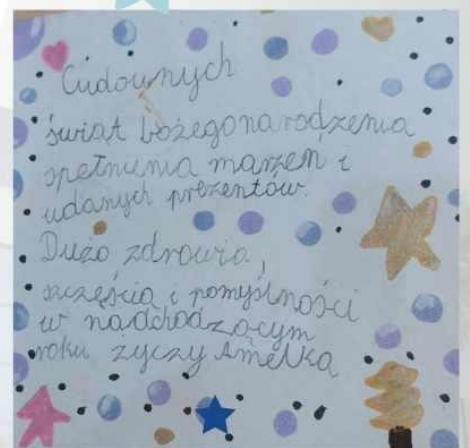 Cudownych
świąt bożegonarodzenia
spełnienia marzeń i
udanych prezentów.
Dużo zdrowia,
szczęścia i pomyślności
w nadchodzącym
roku życzy Amelka